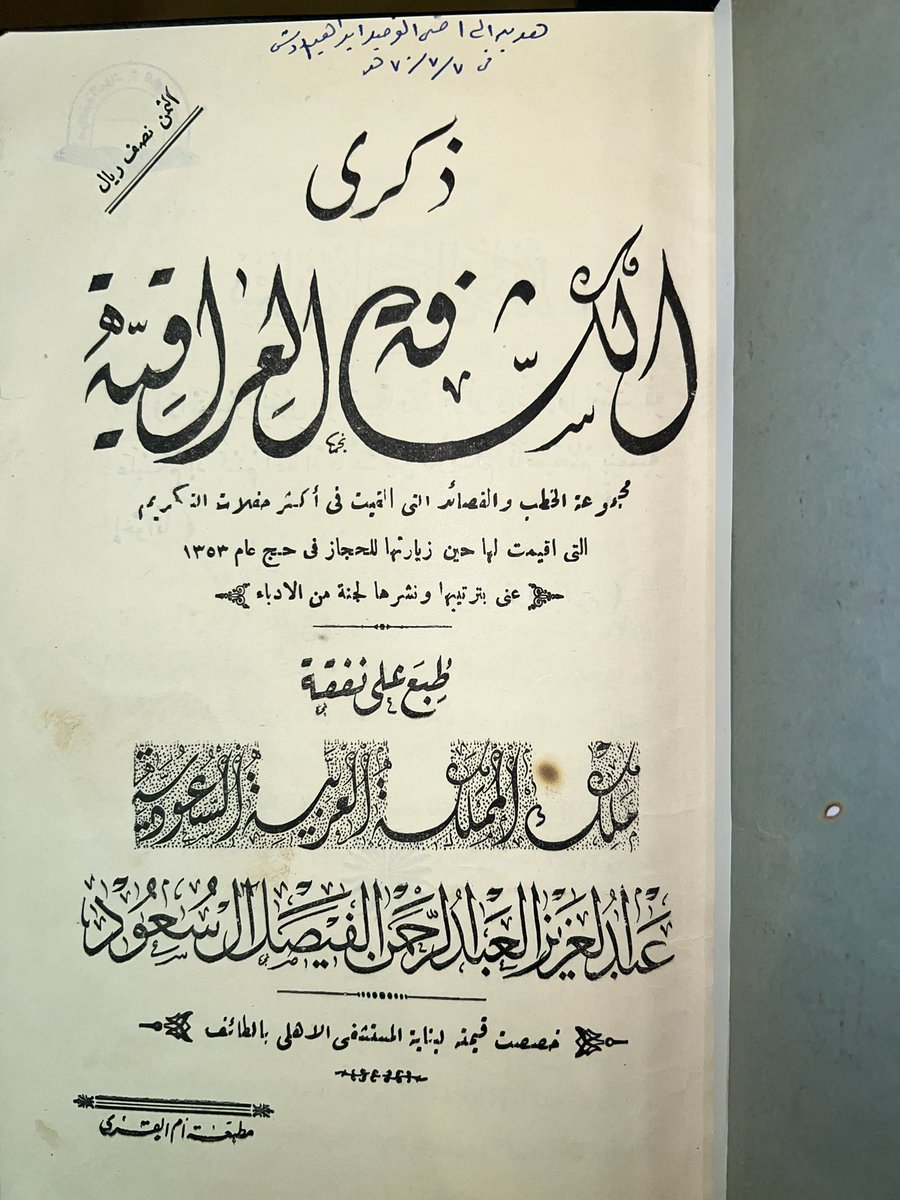 هديه الى اخي الوحيد ابراهيم
في ٧٠/٧/٧ هـ
الثمن نصف ريال
ذكرى
الكشافة العراقية
مجموعة الخطب والقصائد التى القيت فى أكثر حفلات التكريم
التى اقيمت لها حين زيارتها للحجاز فى حج عام ١٣٥٣
عنى بترتيبها ونشرها لجنة من الادباء
طبع على نفقة
ملك المملكة العربية السعودية
عبد العزيز العبد الرحمن الفيصل آل سعود
خصصت قيمته لبناية المستشفى الاهلى بالطائف
مطبعة أم القرى